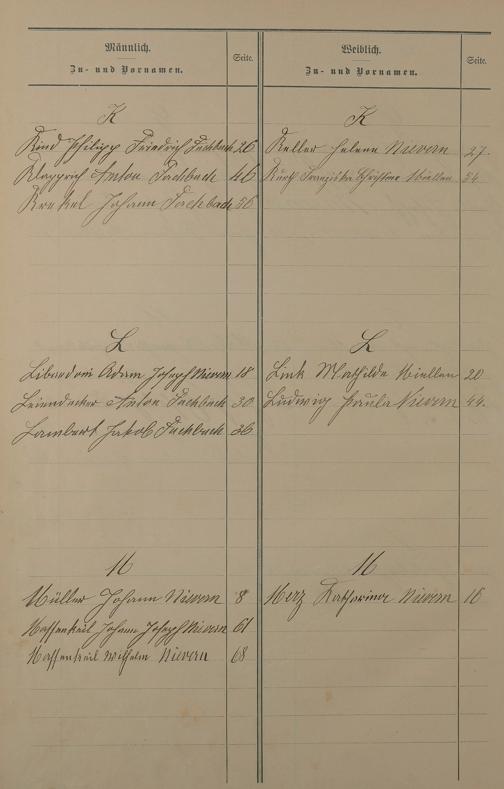 Männlich.
Zu- und Vornamen.
Seite.
K
Kind Philipp Friedrich Fachbach 26
Klapprich Anton Fachbach 46
Krekel Johann Fachbach 56
L
Liberdoni Adam Joseph Nievern 18
Leiendecker Anton Fachbach 30
Lambert Jakob Fachbach 36
M
Müller Johann Nievern 8
Massenkeil Johann Joseph Nievern 61
Massenkeil Wilhelm Nievern 68
Weiblich.
Zu- und Vornamen.
Seite.
K
Keller Helene Nievern 27.
Kurth Franziska Christine Miellen 54
L
Link Mathilde Miellen 20
Ludwig Paula Nievern 44.
M
Merz Katharina Nievern 16